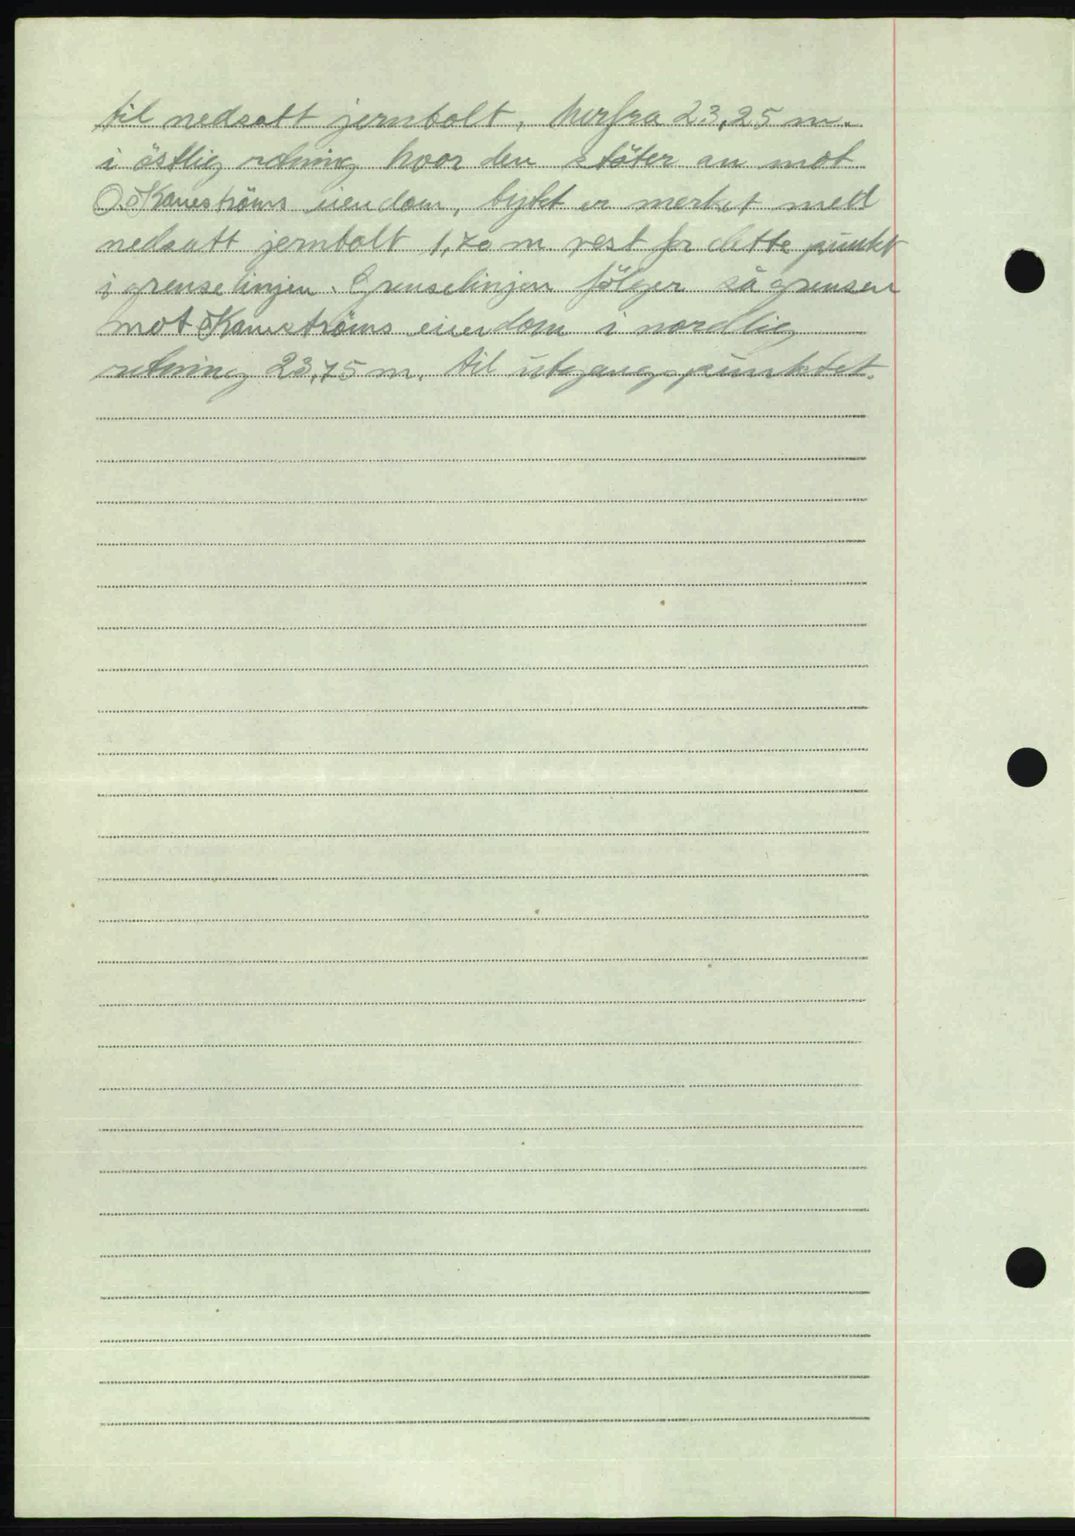 til nedsatt jernbolt, herfra 23,25 m.
i östlig retning hvor den stöter an mot
O. Kaneströms eiendom, bytet er merket med
nedsatt jernbolt 1,70 m vest for dette punkt
i grenselinjen. Grenselinjen fölger så grensen
mot Kaneströms eiendom i nordlig
retning 23,75 m. til utgangspunktet.